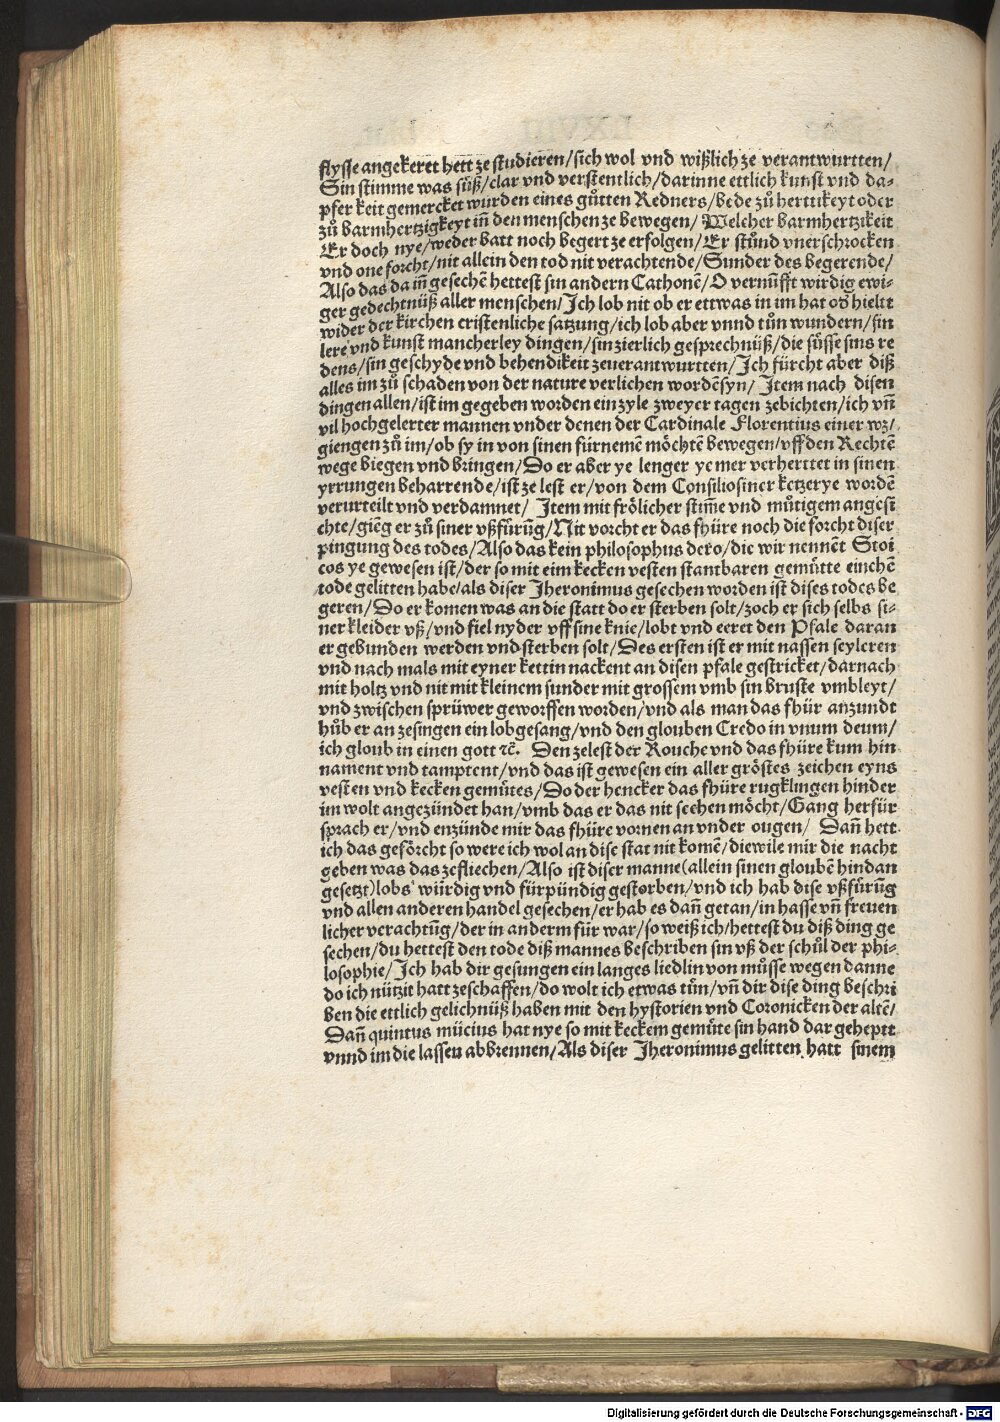 flysse angekeret hett ze studieren/sich wol vnd wißlich ze verantwurtten/
Sin stimme was süß/clar vnd verstentlich/darinne ettlich kunst vnd da-
pfer keit gemercket wurden eines gůtten Redners/bede zů herttikeyt oder
zů barmhertzigkeyt in̄ den menschen ze bewegen/ Welcher barmhertzikeit
Er doch nye/weder batt noch begert ze erfolgen/Er stůnd vnerschrocken
vnd one forcht/nit allein den tod nit verachtende/Sunder des begerende/
Also das da in̄ gesechē hettest sin andern Cathonē/O vernūfft wirdig ewi-
ger gedechtnüß aller menschen/Ich lob nit ob er ettwas in im hat od̓ hieltt
wider der kirchen cristenliche satzung/ich lob aber vnnd tůn wundern/sin
lere vnd kunst mancherley dingen/sin zierlich gesprechnüß/die süsse sins re
dens/sin geschyde vnd behendikeit zeuerantwurtten/Ich fürcht aber diß
alles im zů schaden von der nature verlichen wordē syn/ Item nach disen
dingen allen/ist im gegeben worden ein zyle zweyer tagen zebichten/ich vn̄
vil hochgelerter mannen vnder denen der Cardinale Florentius einer wz/
giengen zů im/ob sy in von sinen fürnemē möchtē bewegen/vff den Rechtē
wege biegen vnd bringen/Do er aber ye lenger ye mer verherttet in sinen
yrrungen beharrende/ist ze lest er/von dem Consilio siner ketzerye wordē
verurteilt vnd verdamnet/ Item mit frölicher stim̄e vnd můtigem angesi
chte/giēg er zů siner vßfürūg/Nit vorcht er das fhüre noch die forcht diser
pingung des todes/Also das kein philosophus dero/die wir nennēt Stoi
cos ye gewesen ist/der so mit eim kecken vesten stantbaren gemütte einchē
tode gelitten habe/als diser Jheronimus gesechen worden ist dises todes be
geren/Do er komen was an die statt do er sterben solt/zoch er sich selbs si-
ner kleider vß/vnd fiel nyder vff sine knie/lobt vnd eeret den Pfale daran
er gebunden werden vnd sterben solt/Des ersten ist er mit nassen seyleren
vnd nach mals mit eyner kettin nackent an disen pfale gestricket/darnach
mit holtz vnd nit mit kleinem sunder mit grossem vmb sin bruste vmbleyt/
vnd zwischen sprüwer geworffen worden/vnd als man das fhür anzundt
hůb er an zesingen ein lobgesang/vnd den glouben Credo in vnum deum/
ich gloub in einen gott ꝛc̄. Den zelest der Rouche vnd das fhüre kum hin
nament vnd tamptent/vnd das ist gewesen ein aller gröstes zeichen eyns
vesten vnd kecken gemütes/Do der hencker das fhüre rugklingen hinder
im wolt angezündet han/vmb das er das nit seehen möcht/Gang herfür
sprach er/vnd enzünde mir das fhüre vornen an vnder ougen/ Dan̄ hett
ich das geförcht so were ich wol an dise stat nit komē/diewile mir die nacht
geben was das zefliechen/Also ist diser manne(allein sinen gloubē hindan
gesetzt)lobs würdig vnd fürpündig gestorben/vnd ich hab dise vßfürūg
vnd allen anderen handel gesechen/er hab es dan̄ getan/in hasse vn̄ freuen
licher verachtūg/der in anderm für war/so weiß ich/hettest du diß ding ge
sechen/du hettest den tode diß mannes beschriben sin vß der schůl der phi-
losophie/Ich hab dir gesungen ein langes liedlin von můsse wegen danne
do ich nützit hatt zeschaffen/do wolt ich etwas tůn/vn̄ dir dise ding beschri
ben die ettlich gelichnüß haben mit den hystorien vnd Coronicken der altē/
Dan̄ quintus mücius hat nye so mit keckem gemüte sin hand dar geheptt
vnnd im die lassen abbrennen/Als diser Jheronimus gelitten hatt sinem
Digitalisierung gefördert durch die Deutsche Forschungsgemeinschaft - DFG